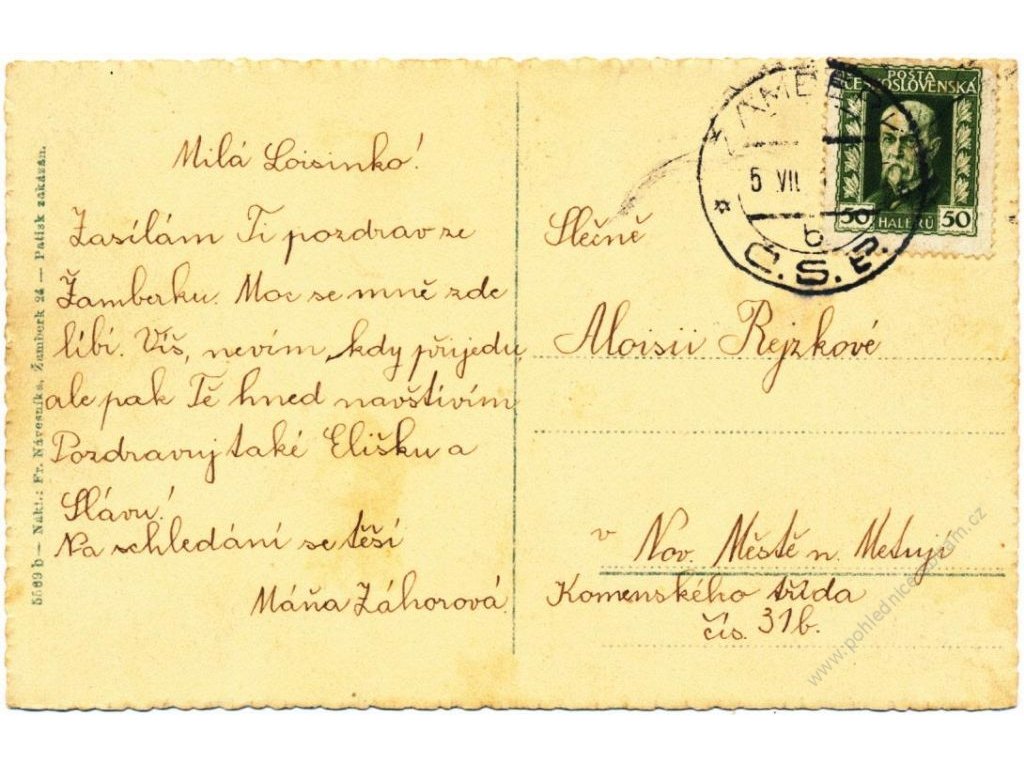 Milá Loisinko!
Zasílám Ti pozdrav ze
Žamberku. Moc se mně zde
líbí. Víš, nevím, kdy přijedu,
ale pak Tě hned navštívím
Pozdravuj také Elišku a
Slávu!
Na schledání se těší
Máňa Záhorová
5569 b — Nakl.: Fr. Návesník, Žamberk 24 — Patisk zakázán.
POŠTA
ČESKOSLOVENSKÁ
50 HALÉŘŮ 50
5 VII
b
Č.S.P.
Slečně
Aloisii Rejzkové
v Nov. Městě n. Metují
Komenského třída
čís. 31b.